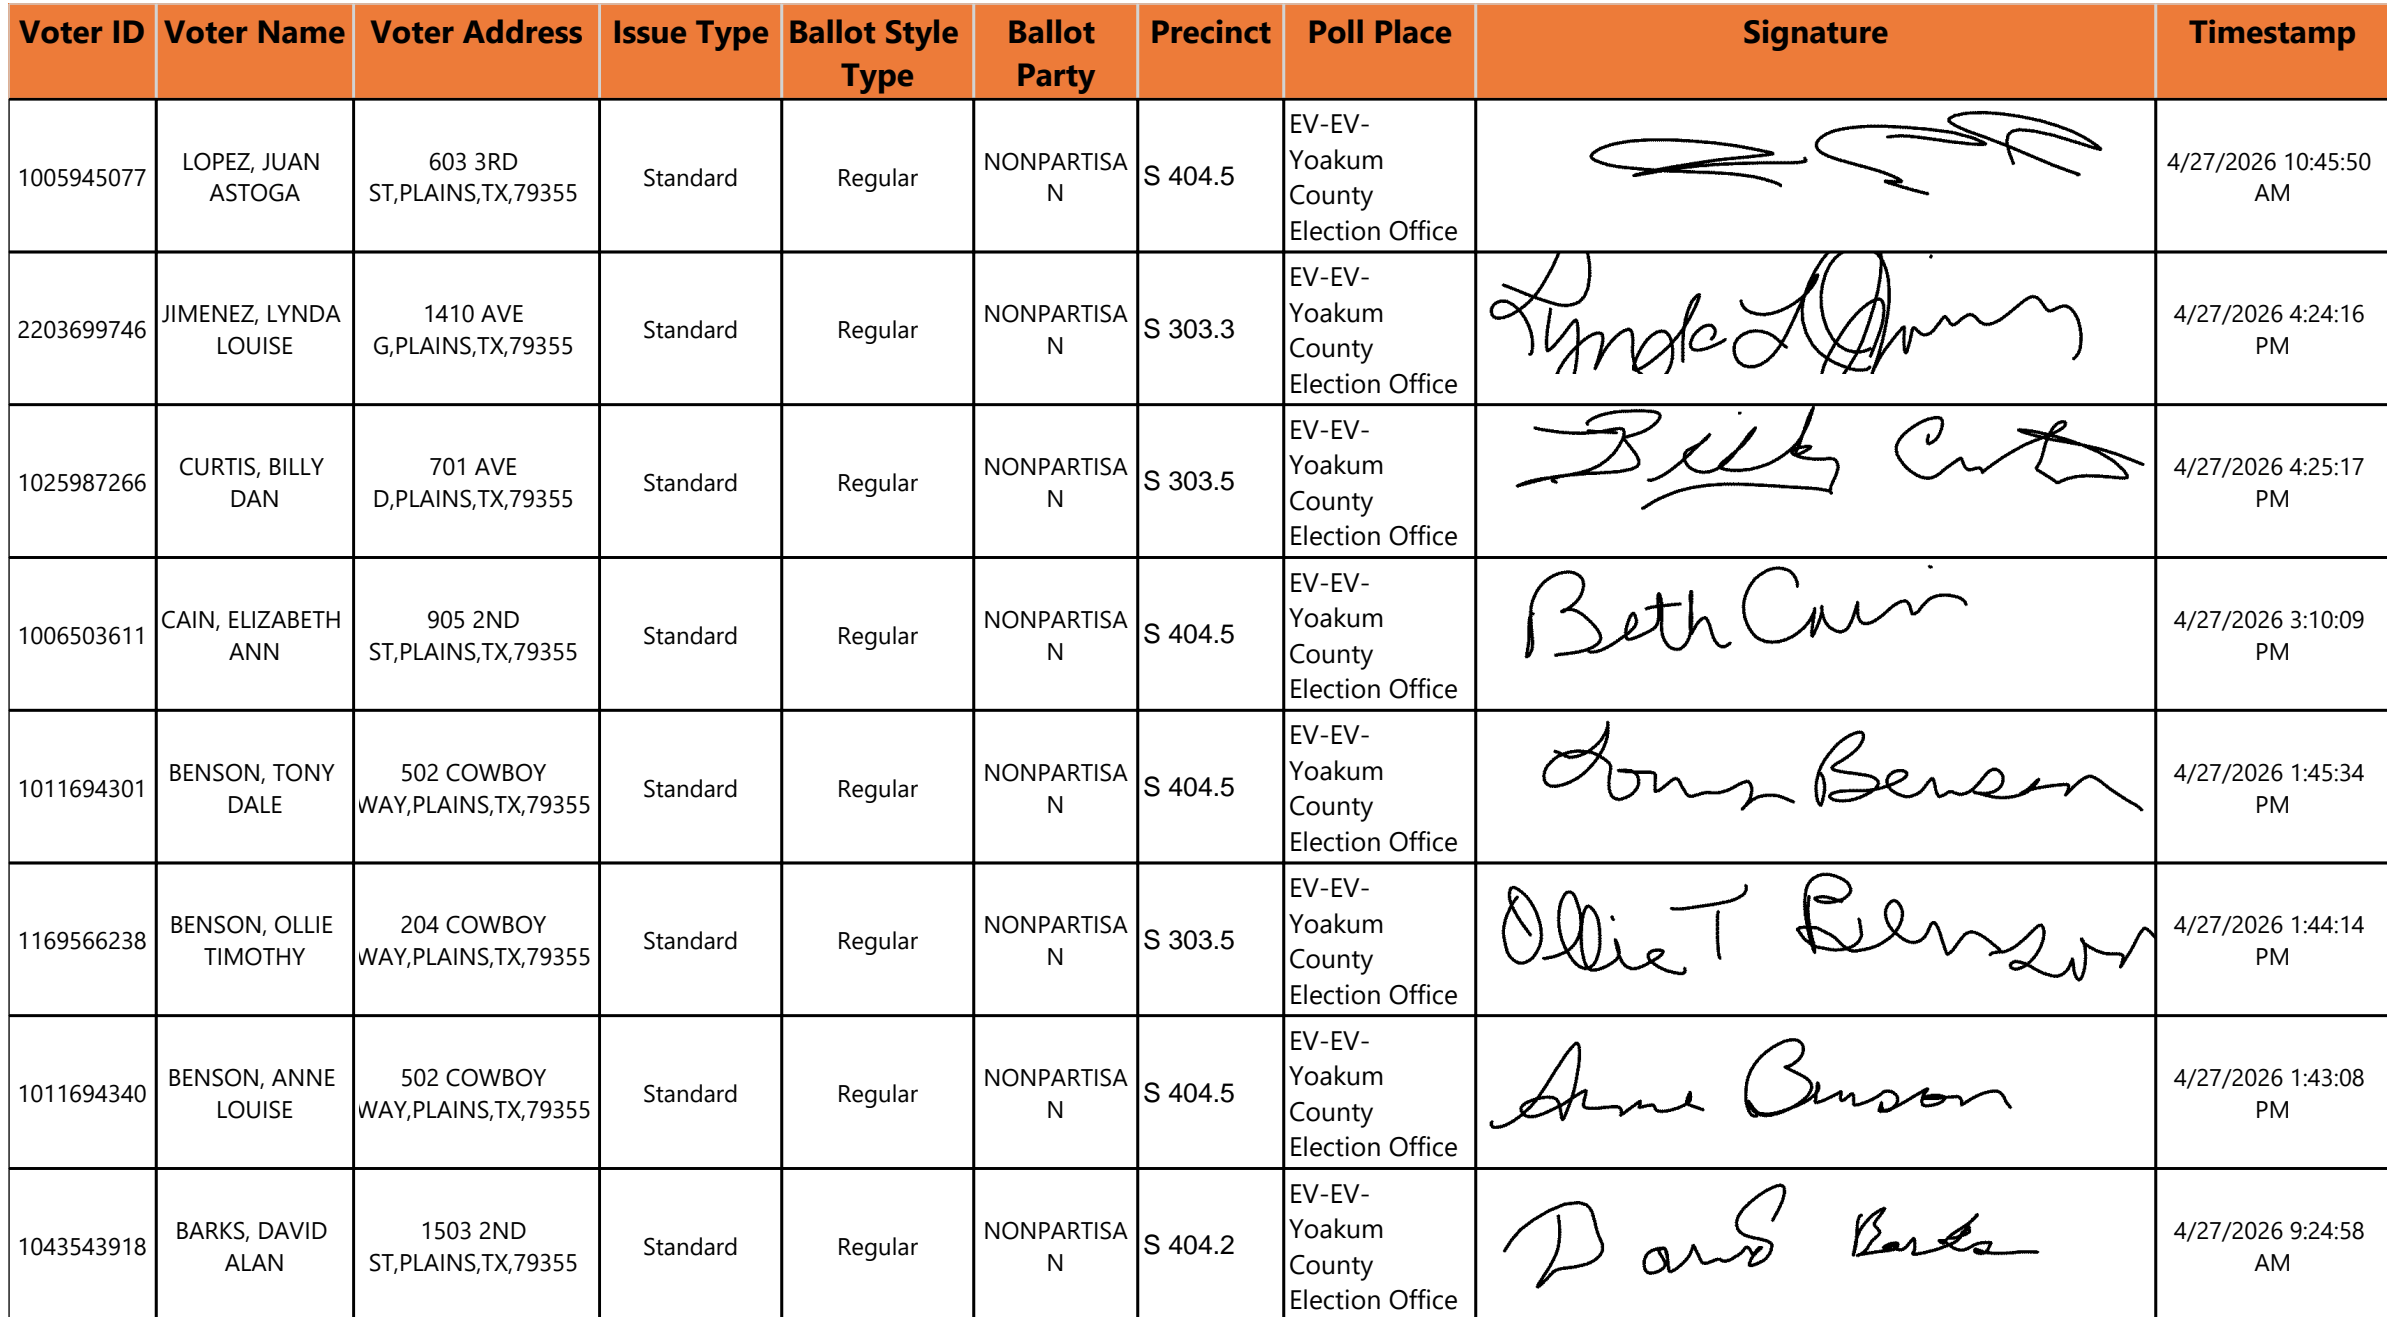 Voter ID Voter Name Voter Address Issue Type Ballot Style Type Ballot Party Precinct Poll Place Signature Timestamp
1005945077 LOPEZ, JUAN ASTOGA 603 3RD ST,PLAINS,TX,79355 Standard Regular NONPARTISAN S 404.5 EV-EV-Yoakum County Election Office 4/27/2026 10:45:50 AM
2203699746 JIMENEZ, LYNDA LOUISE 1410 AVE G,PLAINS,TX,79355 Standard Regular NONPARTISAN S 303.3 EV-EV-Yoakum County Election Office 4/27/2026 4:24:16 PM
1025987266 CURTIS, BILLY DAN 701 AVE D,PLAINS,TX,79355 Standard Regular NONPARTISAN S 303.5 EV-EV-Yoakum County Election Office Billy Curtis 4/27/2026 4:25:17 PM
1006503611 CAIN, ELIZABETH ANN 905 2ND ST,PLAINS,TX,79355 Standard Regular NONPARTISAN S 404.5 EV-EV-Yoakum County Election Office Beth Cain 4/27/2026 3:10:09 PM
1011694301 BENSON, TONY DALE 502 COWBOY WAY,PLAINS,TX,79355 Standard Regular NONPARTISAN S 404.5 EV-EV-Yoakum County Election Office Tony Benson 4/27/2026 1:45:34 PM
1169566238 BENSON, OLLIE TIMOTHY 204 COWBOY WAY,PLAINS,TX,79355 Standard Regular NONPARTISAN S 303.5 EV-EV-Yoakum County Election Office Ollie T Benson 4/27/2026 1:44:14 PM
1011694340 BENSON, ANNE LOUISE 502 COWBOY WAY,PLAINS,TX,79355 Standard Regular NONPARTISAN S 404.5 EV-EV-Yoakum County Election Office Anne Benson 4/27/2026 1:43:08 PM
1043543918 BARKS, DAVID ALAN 1503 2ND ST,PLAINS,TX,79355 Standard Regular NONPARTISAN S 404.2 EV-EV-Yoakum County Election Office David Barks 4/27/2026 9:24:58 AM